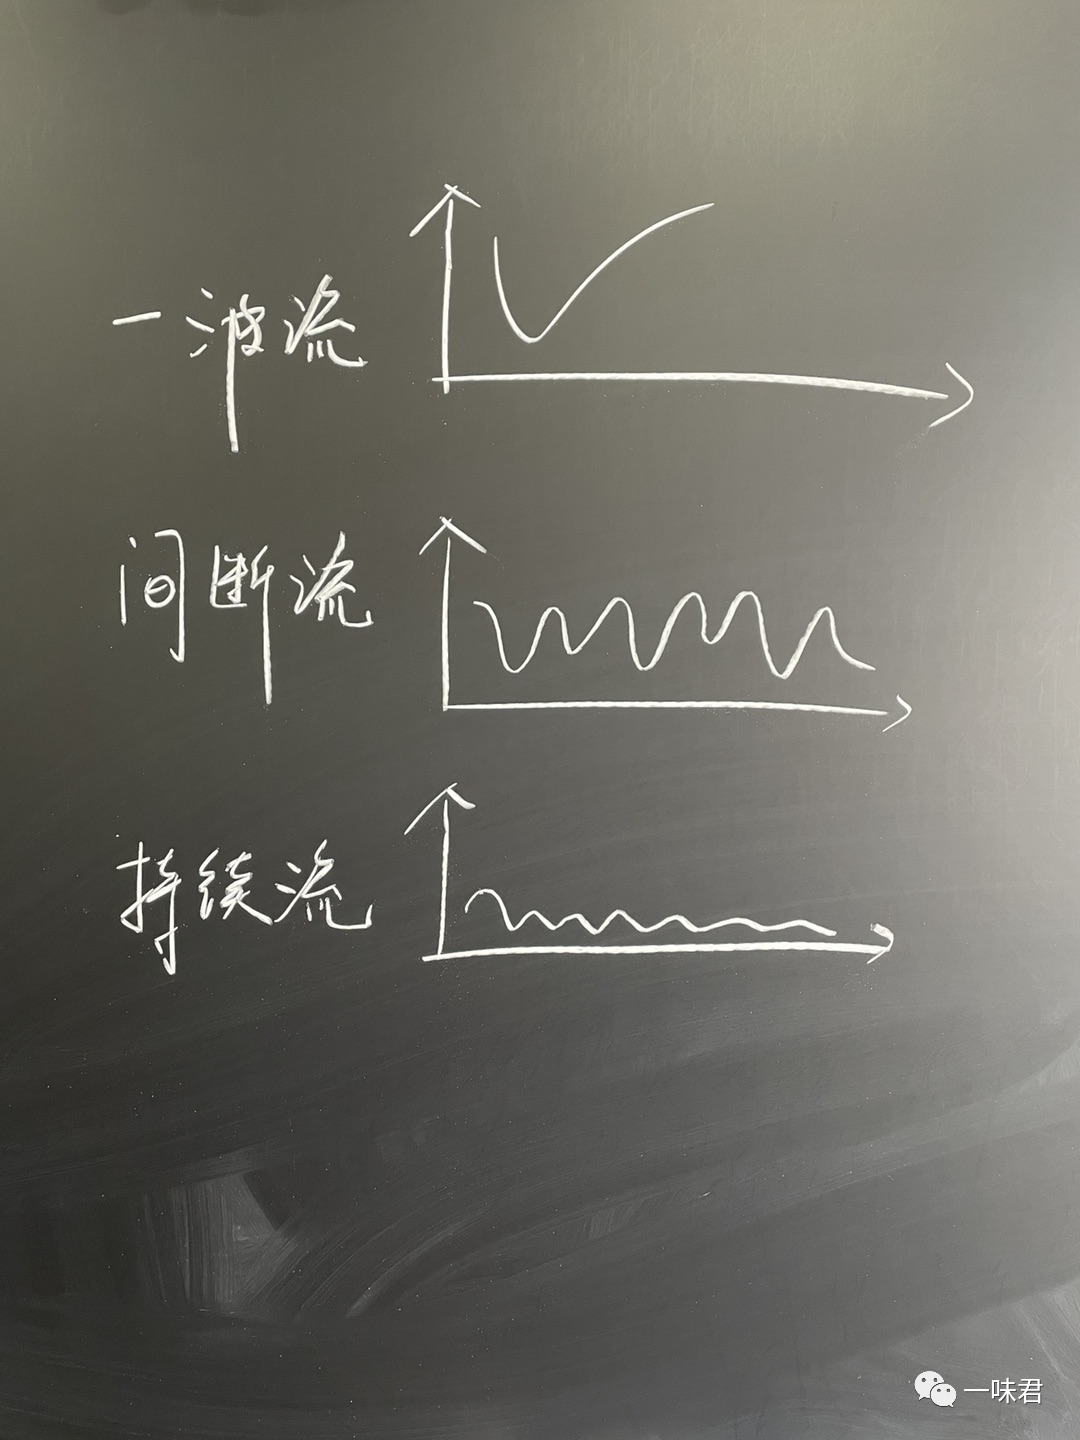 一波流
间断流
持续流
一味君